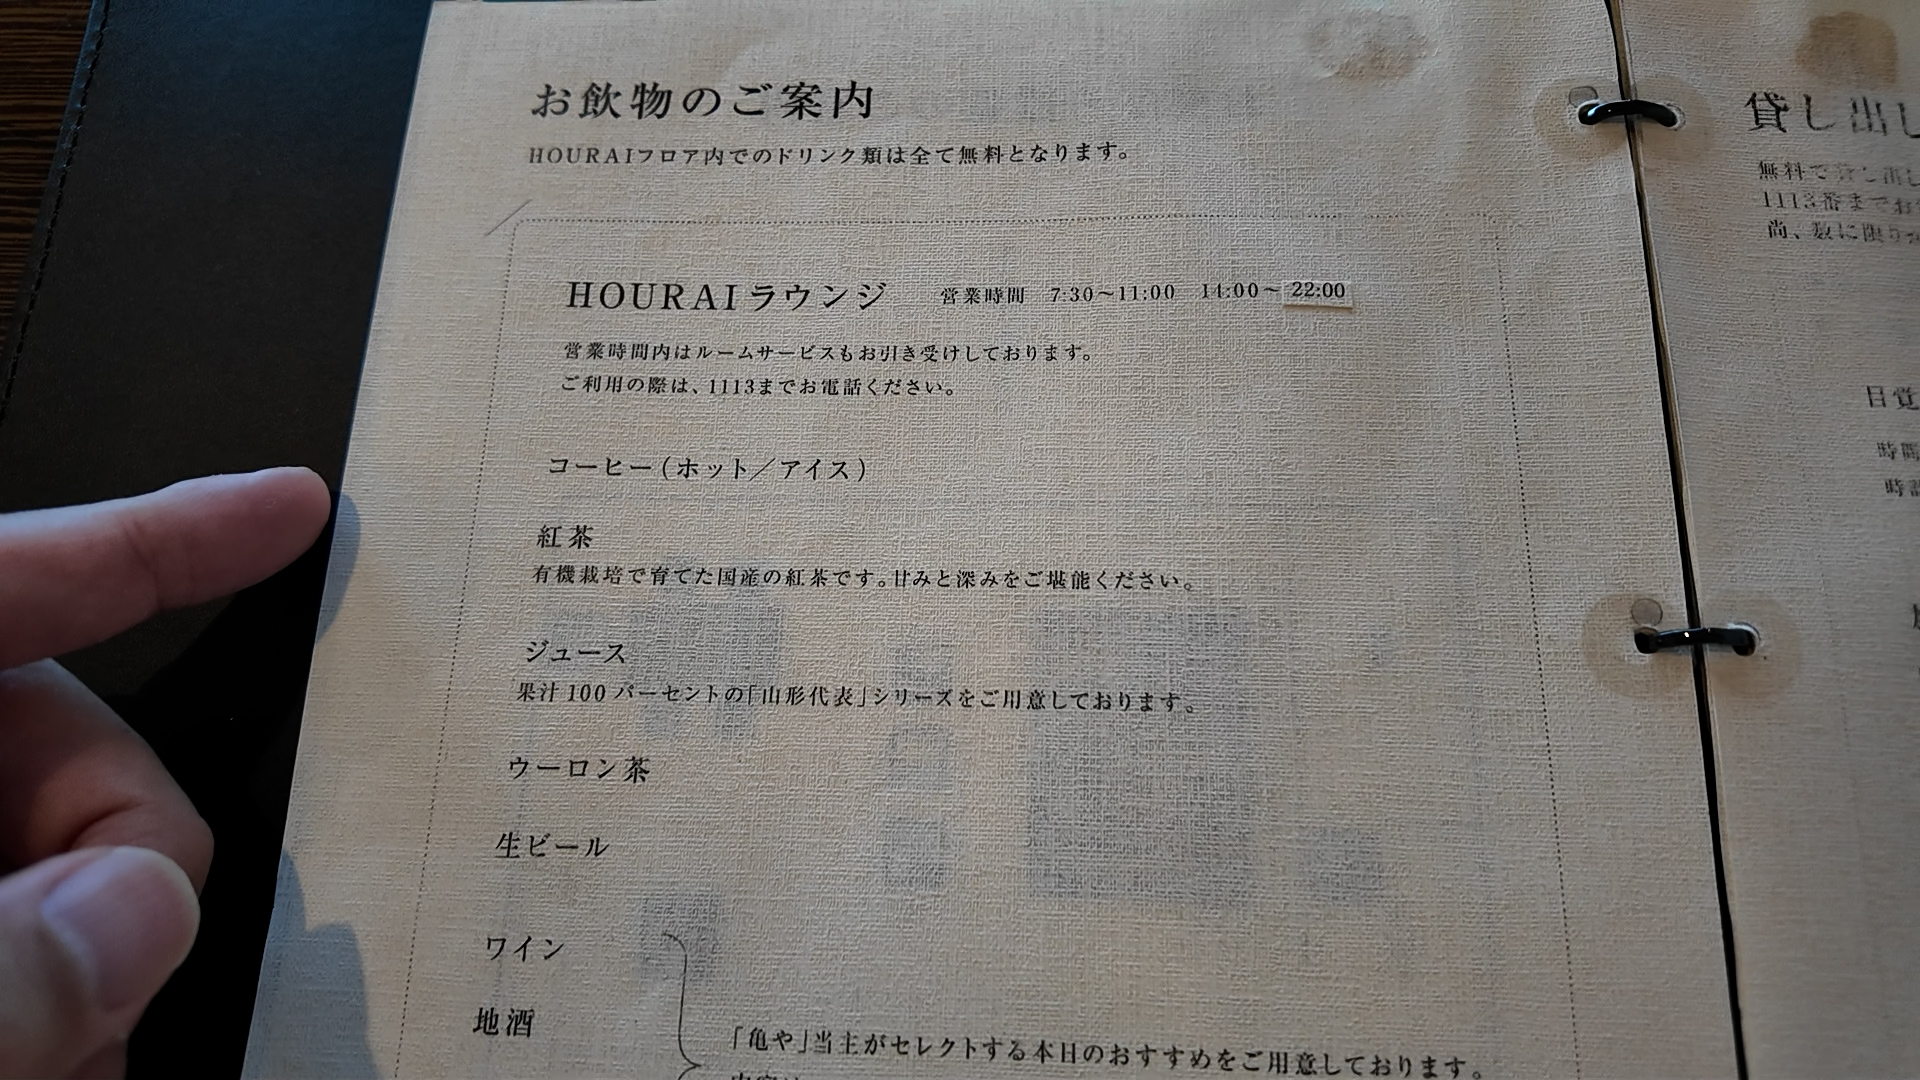 お飲物のご案内
HOURAIフロア内でのドリンク類は全て無料となります。
HOURAIラウンジ 営業時間 7:30～11:00 14:00～22:00
営業時間内はルームサービスもお引き受けしております。
ご利用の際は、1113までお電話ください。
コーヒー(ホット／アイス)
紅茶
有機栽培で育てた国産の紅茶です。甘みと深みをご堪能ください。
ジュース
果汁100パーセントの「山形代表」シリーズをご用意しております。
ウーロン茶
生ビール
ワイン
地酒
「亀や」当主がセレクトする本日のおすすめをご用意しております。
貸し出し
無料で貸し出し
1113番までお
尚、数に限りが
目覚
時間
時